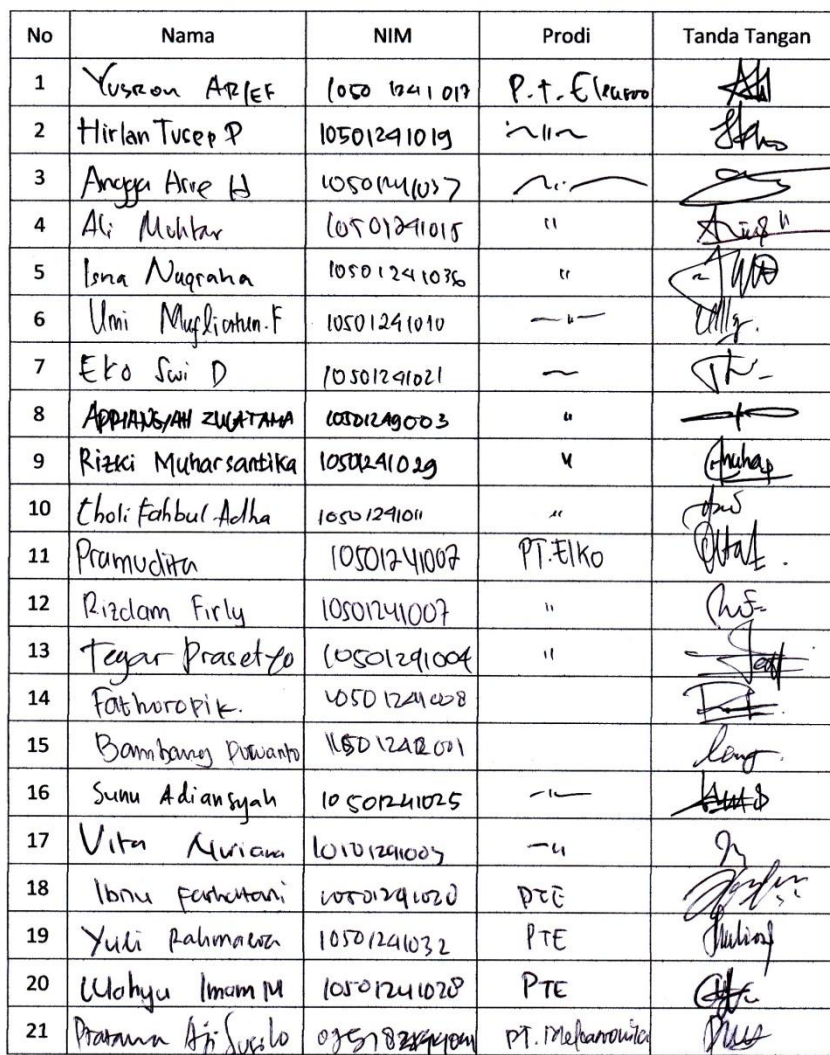 No Nama NIM Prodi Tanda Tangan
1 Yusron ARIEF 10501241017 P.T. Elektro
2 Hirlan Tucep P 10501241019 ~11~
3 Angga Arie H 10501241037
4 Ali Muhtar 10501241015 "
5 Isna Nugraha 10501241036 "
6 Umi 10501241010 —"—
7 Eko Swi D 10501241021
8 10501249003 "
9 Rizki Muharsantika 10501241029 "
10 Choli Fahbul Adha 10501241011 "
11 Pramudita 10501241007 PT.Elko
12 Rizdam Firly 10501241007 "
13 Tegar Prasetyo 10501241004 "
14 Fathuropik. 10501241008
15 Bambang Purwanto
16 Sunu Adiansyah 10501241025 —"—
17 Vita —"
18 Ibnu PTE
19 Yuli Rahmawa 10501241032 PTE
20 Wahyu Imam M 10501241028 PTE
21 Pratama Aji Susilo PT. Mekatronika